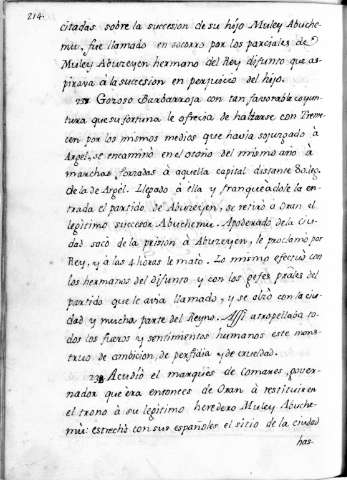 214.
citadas sobre la succesion de su hijo Muley Abuche-
miu, fue llamado en socorro por los parciales de
Muley Abuzeyen hermano del Rey difunto que as-
pirava à la sucesion en perjuicio del hijo.
Gozoso Barbarroja con tan favorable coyun-
tura que su fortuna le ofrecia de halzarse con Treme-
cen por los mismos medios que havia sojuzgado à
Argel, se encaminò en el otoño del mismo año à
marchas forzadas à aquella capital distante 80. leg.
de la de Argel. Llegado à ella y franqueadole la en-
trada el partido de Abuzeyen, se retirò a Oran el
legitimo succesor Abuchemie. Apoderado de la ciu-
dad sacò de la prision à Abuzeyen, le proclamò por
Rey, y à las 4 horas le matò. Lo mismo efectuò con
los hermanos del difunto y con los gefes prales del
partido que le avia llamado, y se alzò con la ciu-
dad y mucha parte del Reyno. Assi atropellaba to-
dos los fueros y sentimientos humanos este mons-
truo de ambicion, de perfidia y de crueldad.
Acudiò el marquès de Comares, gover-
nador que era entonces de Oran à restituir en
el trono à su legitimo heredero Muley Abuche-
miu: estrechò con sus españoles el sitio de la ciudad
has-